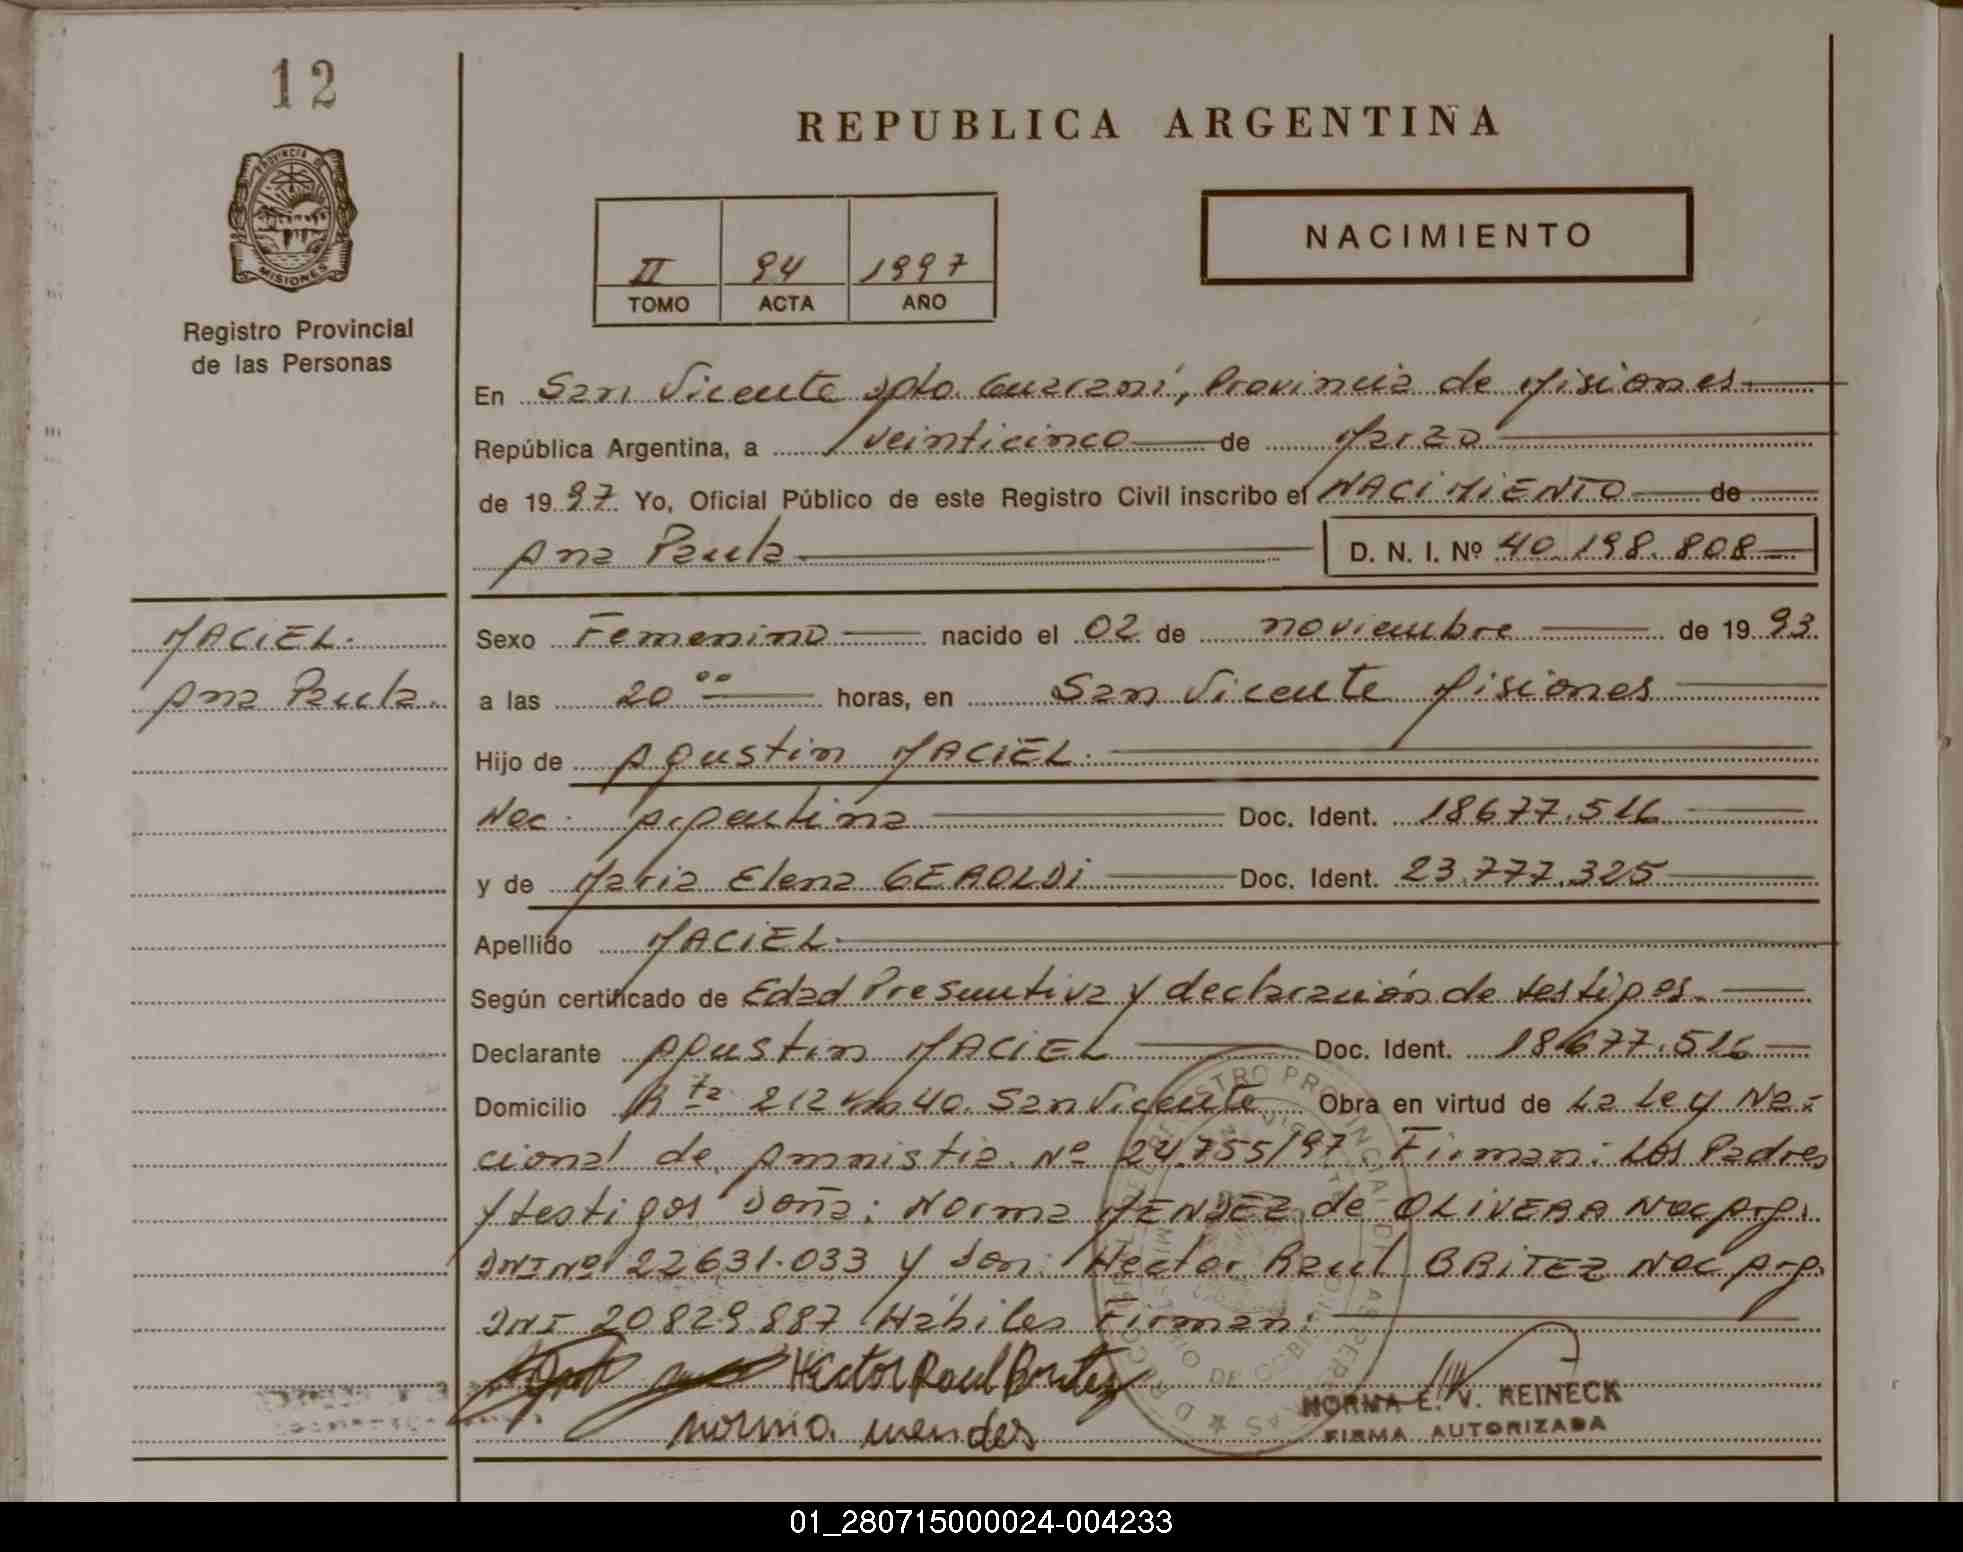 12
REPUBLICA ARGENTINA
PROVINCIA DE
MISIONES
Registro Provincial
de las Personas
NACIMIENTO
II 94 1997
TOMO ACTA AÑO
En San Vicente Dpto. Guaraní, Provincia de Misiones
República Argentina, a veinticinco de Marzo
de 1997 Yo, Oficial Público de este Registro Civil inscribo el NACIMIENTO de
Ana Paula D. N. I. Nº 40.198.808
MACIEL.
Ana Paula.
Sexo Femenino nacido el 02 de noviembre de 1993.
a las 20 00 horas, en San Vicente Misiones
Hijo de Agustin MACIEL.
Nac. Argentina Doc. Ident. 18677.516
y de Maria Elena GEROLDI Doc. Ident. 23.777.325
Apellido MACIEL
Según certificado de Edad Presuntiva y declaración de testigos.
Declarante Agustin MACIEL Doc. Ident. 18677.516
Domicilio Rta 212 Km 40. San Vicente Obra en virtud de La Ley Na-
cional de Amnistia Nº 24.755/97 Firman: Los Padres
y testigos Doña: Norma MENDEZ de OLIVERA Nac Arg.
DNI Nº 22631.033 y Don: Hector Raul BRITEZ Nac Arg.
DNI 20829.887 Hábiles Firman:
Hector Raul Britez
norma mendes
NORMA E. V. REINECK
FIRMA AUTORIZADA
01_280715000024-004233